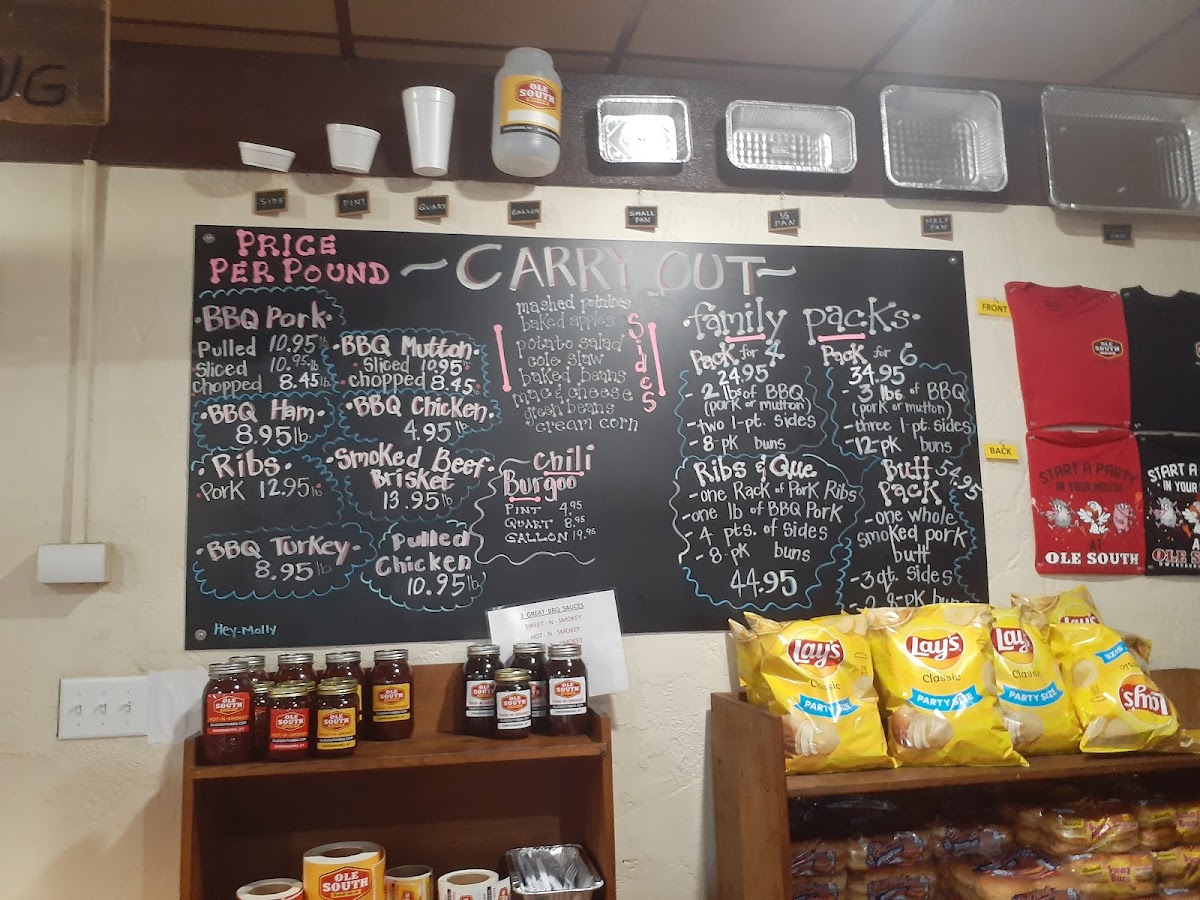 NG
OLE
SOUTH
SIDE
PINT
QUART
GALLON
SMALL
PAN
1/3
PAN
HALF
PAN
PRICE
PER POUND
~CARRY OUT~
BBQ Pork
Pulled 10.95 lb
Sliced 10.95 lb
Chopped 8.45 lb
BBQ Mutton
Sliced 10.95
Chopped 8.45 lb
BBQ Ham
8.95 lb
BBQ Chicken
4.95 lb
Ribs
Pork 12.95 lb
Smoked Beef
Brisket
13.95 lb
BBQ Turkey
8.95 lb
Pulled
Chicken
10.95 lb
Hey-Molly
Sides
mashed potatoes
baked apples
potato salad
cole slaw
baked beans
mac & cheese
green beans
cream corn
Chili
Burgoo
PINT 4.95
QUART 8.95
GALLON 19.95
family packs
Pack for 4
24.95
- 2 lbs of BBQ
(pork or mutton)
- two 1-pt. sides
- 8-pk buns
Pack for 6
34.95
3 lbs. of BBQ
(pork or mutton)
- three 1-pt. sides
- 12-pk buns
Ribs & Que
- one Rack of Pork Ribs
- one lb of BBQ Pork
- 4 pts. of Sides
- 8 pk buns
44.95
Butt 54.95
Pack
- one whole
smoked pork
butt
- 3 qt. sides
- 2 8-pk buns
FRONT
OLE
SOUTH
BACK
START A PARTY
IN YOUR MOUTH
AT
OLE SOUTH
START A
IN YOUR
OLE
3 GREAT BBQ SAUCES
SWEET - N - SMOKEY
HOT - N - SMOKEY
SMOKEY
OLE
SOUTH
HOT-N-SMOKEY
OLE
SOUTH
OLE
SOUTH
OLE
SOUTH
SOUTH
SOUTH
SOUTH
Lay's
Classic
PARTY SIZE
Lay's
Classic
PARTY SIZE
Lay's
Classic
PARTY SIZE
Lay's
OLE
SOUTH